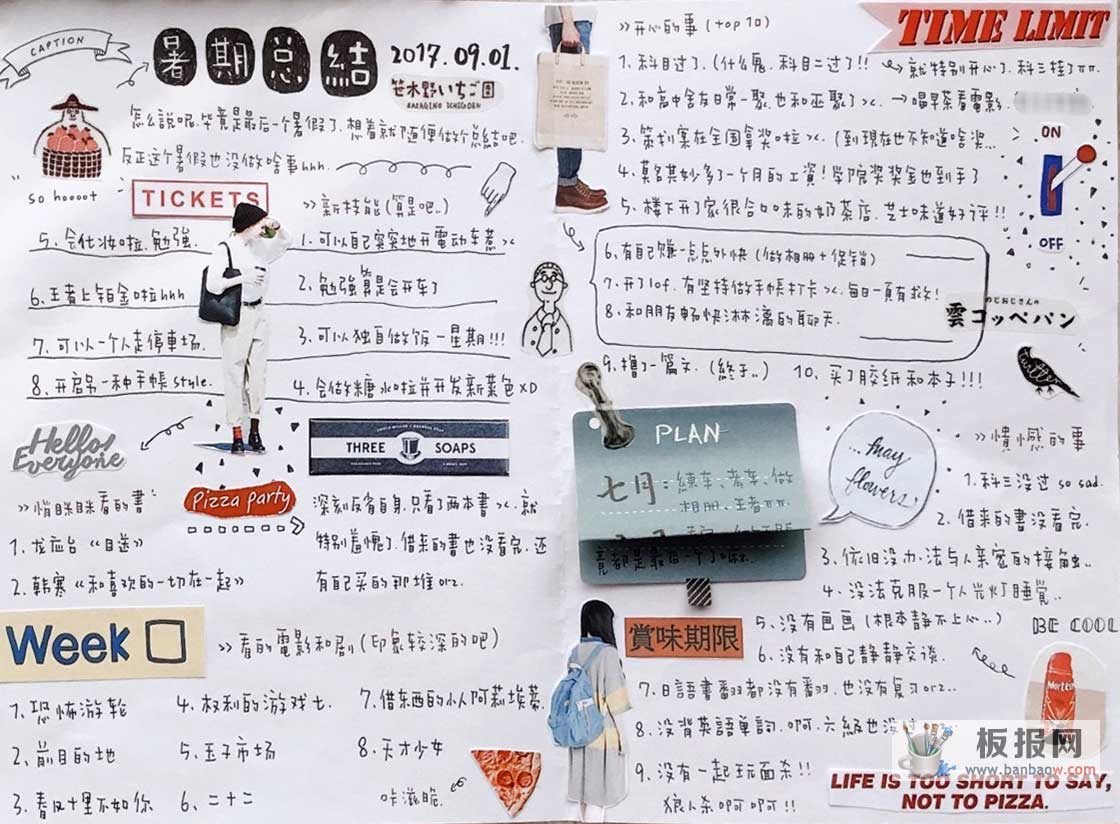 CAPTION
暑期总結
2017.09.01.
笹木野いちご園
SASAGINO ICHIGOEN
怎么說呢.毕竟是最后一个暑假了.想着就随便做个总結吧.
反正这个暑假也没做啥事hhh.
so hoooot
TICKETS
>>新技能(算是吧..)
5、会化妆啦.勉强.
6、王者上铂金啦hhh
7、可以一个人走停車场.
8、开启另一种手帳style.
1、可以自己突突地开電动车惹><
2、勉强算是会开车了
3、可以独自做饭一星期!!!
4、会做糖水啦并开发新菜色XD
Hello! Everyone
THREE SOAPS
Pizza party
>>悄眯眯看的書
1、龙应台《目送》
2、韩寒《和喜欢的一切在一起》
深刻反省自身.只看了两本書><.就
特别羞愧了.借来的書也没看完.还
有自己买的那堆orz.
Week
>>看的電影和剧(印象较深的吧)
1、恐怖游轮
2、前目的地
3、春风十里不如你
4、权利的游戏七.
5、玉子市场
6、二十二
7、借东西的小人阿莉埃蒂.
8、天才少女
咔滋脆.
>>开心的事(top10)
TIME LIMIT
1、科目过了.(什么鬼.科目二过了!! 就特别开心了.科三挂了πт.
2、和高中舍友日常一聚.也和巫聚了><. →喝早茶看電影.
3、策划案在全国拿奖啦><.(到現在也不知道啥奖...
4、莫名其妙多了一个月的工資!学院奖奖金也到手了
5、楼下开了家很合口味的奶茶店.芝士味道好评!!
ON
OFF
6、有自己赚一点点外快(做相册+促销)
7、开了lof.有坚持做手帳打卡><.每日一頁有救!
8、和朋友畅快淋漓的聊天.
のじおじさんの
雲コッペパン
9、撸了一篇文.(終于..)
10、买了胶紙和本子!!!
PLAN
七月:練车、考车、做
相册.王者ππ.
竟都是最后一个了
...may flowers.
>>憒憾的事
1、科三没过 so sad.
2、借来的書没看完.
3、依旧没办法与人亲密的接触..
4、没法克服一个人关灯睡觉..
賞味期限
5、没有画画(根本静不上心..)
BE COOL
6、没有和自己静静交谈.
7、日語書翻都没有翻.也没有复习orz..
8、没背英語单詞.啊.六級也没
9、没有一起玩面杀!!
狼人杀啊啊啊!!
Mortein
板报网
www.banbaow.com
LIFE IS TOO SHORT TO SAY,
NOT TO PIZZA.